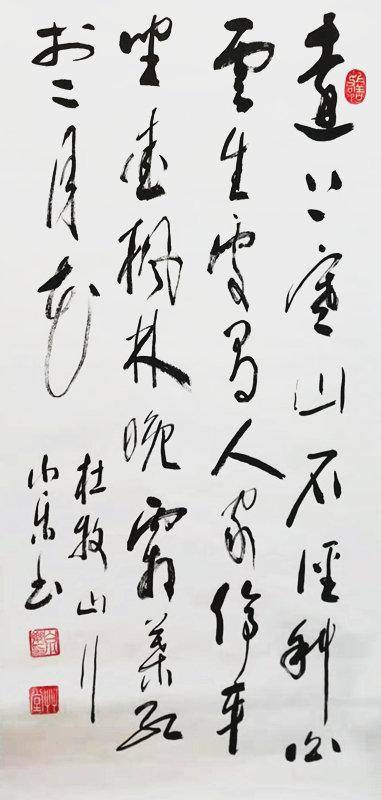 遠上寒山石徑斜白
雲生處有人家停車
坐愛楓林晚霜葉紅
於二月花
杜牧山行
书